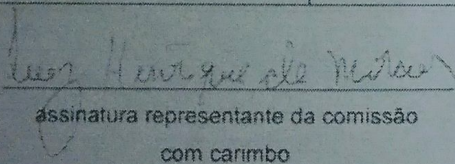 Luiz Henrique de Morais
assinatura representante da comissão
com carimbo